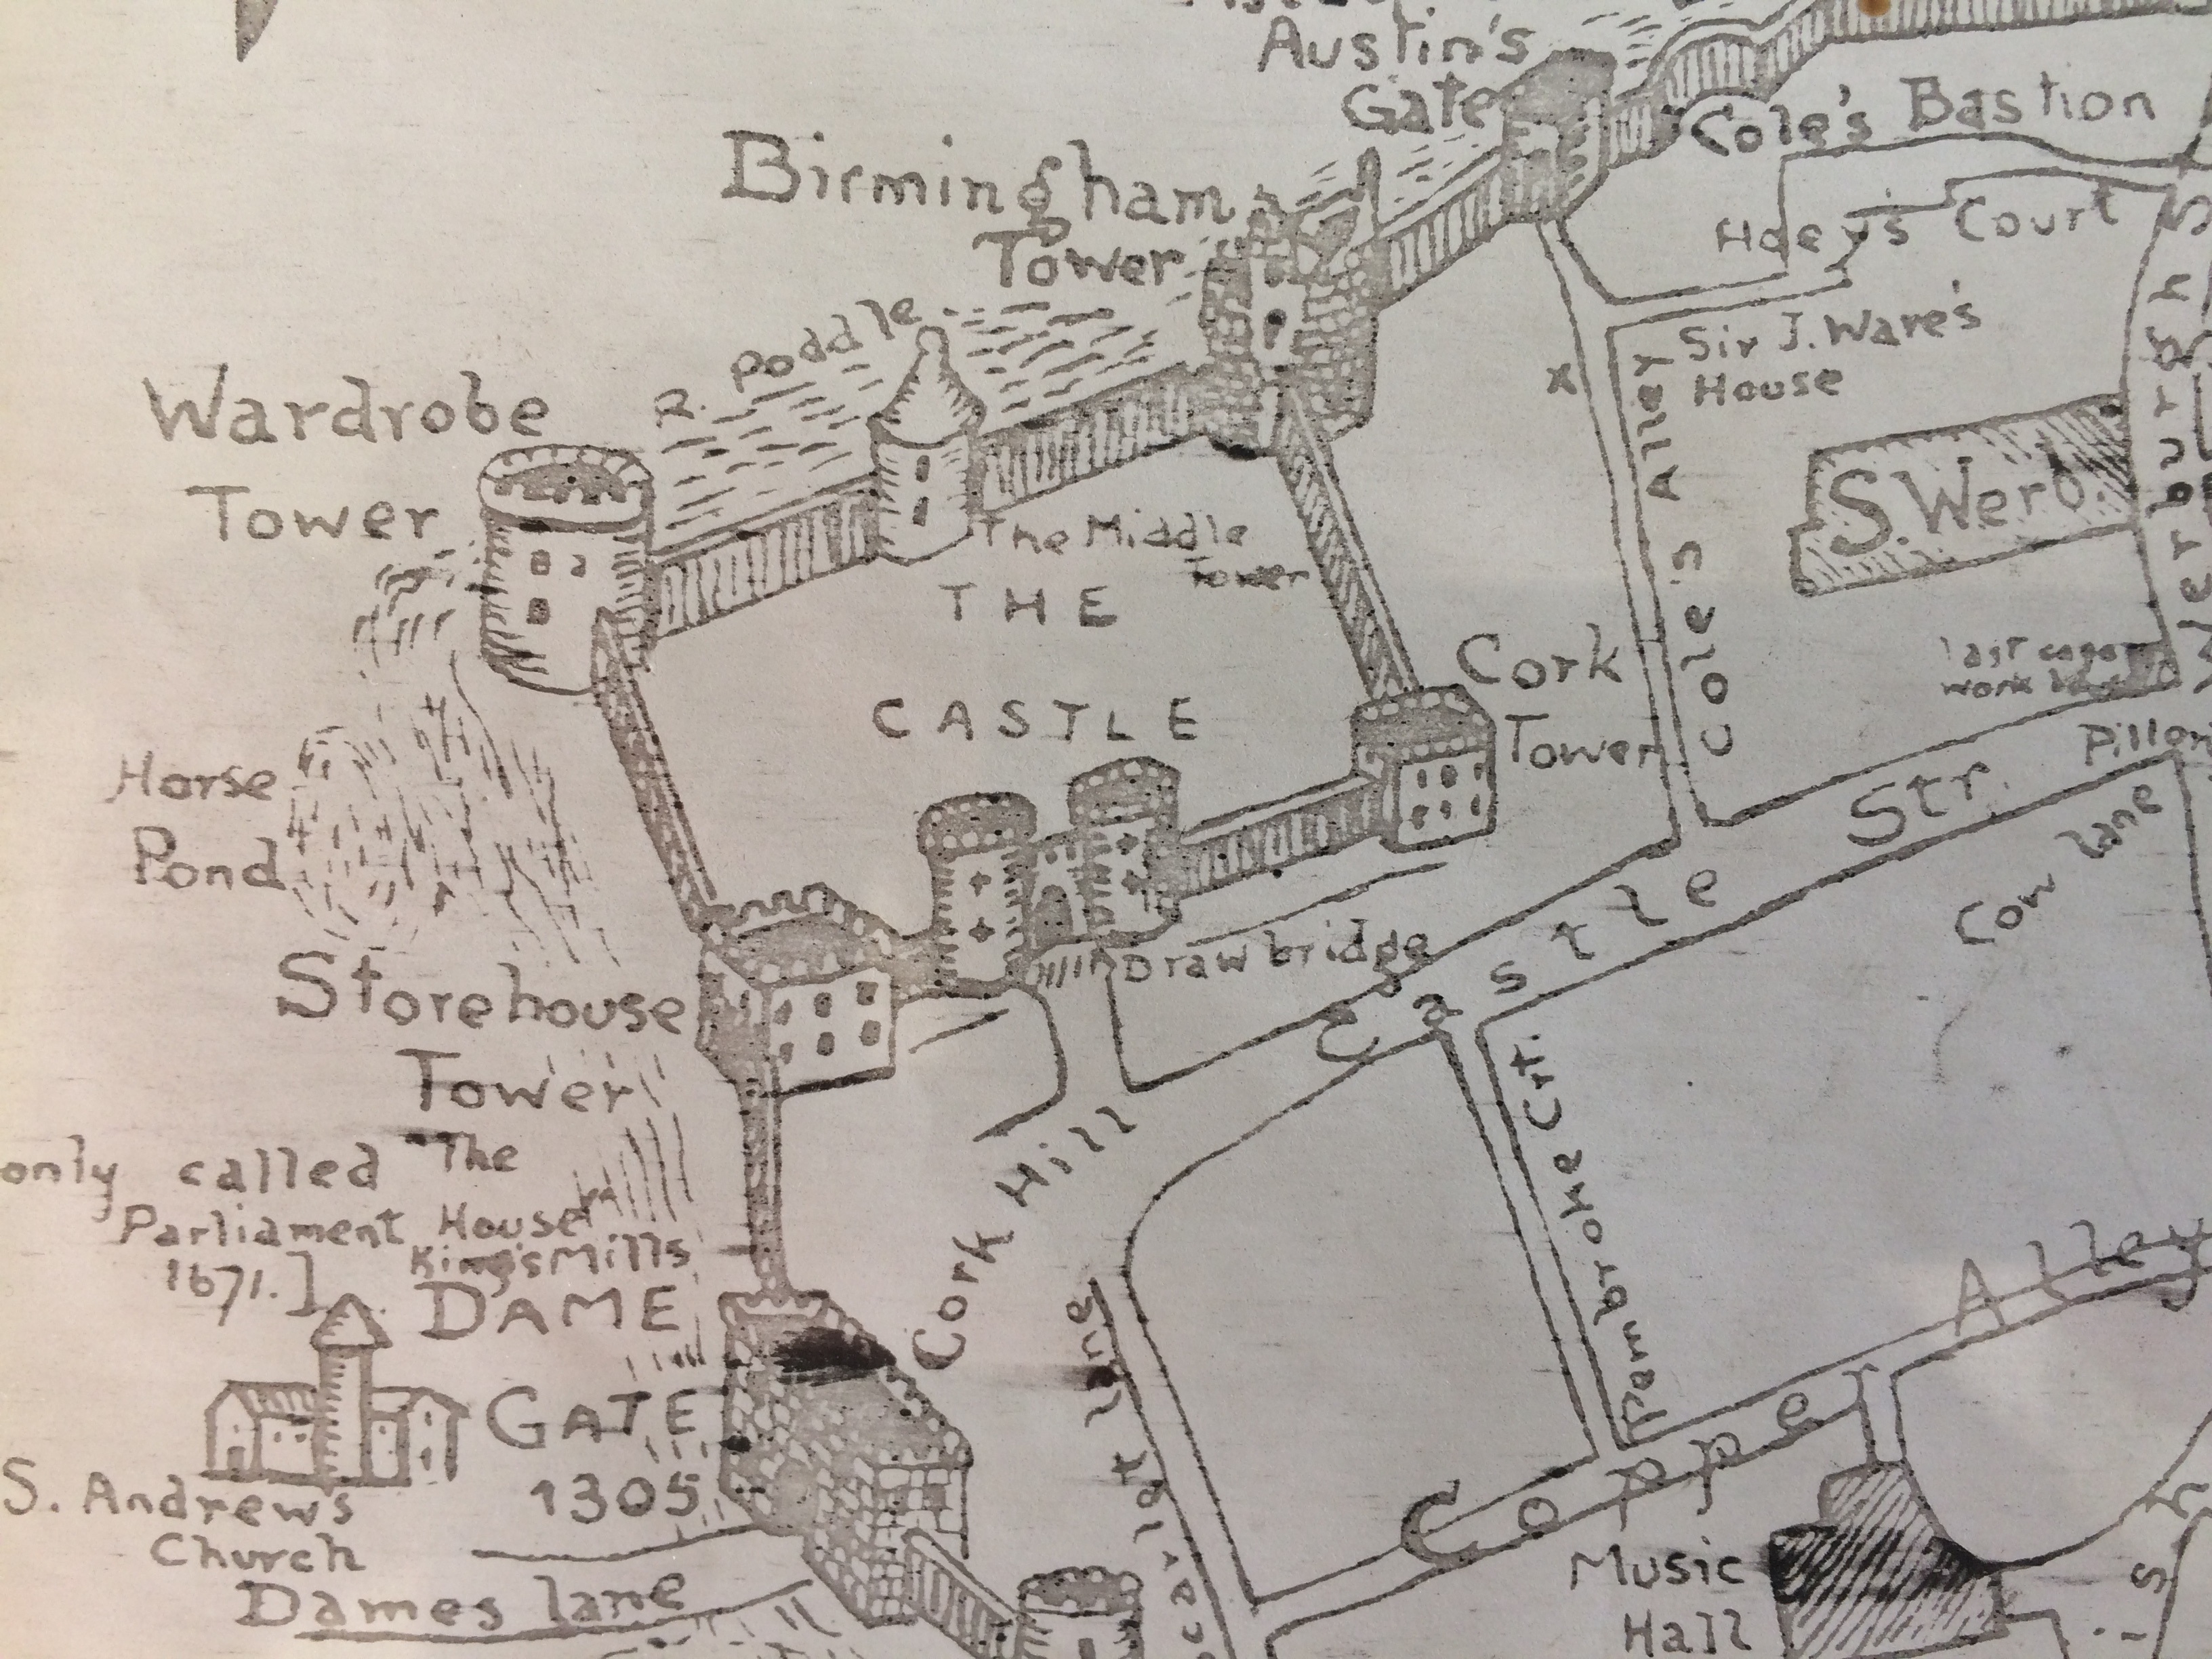 Austin's
Gate
Cole's Bastion
Birmingham
Tower
Hoey's Court
R. Poddle
Sir J. Ware's
House
Wardrobe
Tower
The Middle
Tower
Cole's Alley
S. Werb.
THE
CASTLE
Cork
Tower
last
work
Horse
Pond
Castle Str.
Cow lane
Drawbridge
Storehouse
Tower
Pembroke Crt.
Cork Hill
only called "The
Parliament House"
1671.]
King's Mills
DAME
GATE
1305
Copper Alley
S. Andrews
Church
Dames lane
lane
Music
Hall
x